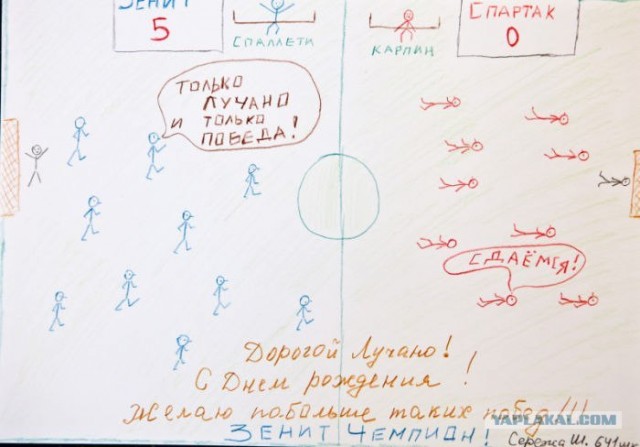 ЗЕНИТ
5
СПАЛЛЕТИ
КАРПИН
СПАРТАК
0
ТОЛЬКО
ЛУЧАНО
И ТОЛЬКО
ПОБЕДА!
СДАЁМСЯ!
Дорогой Лучано!
С Днем рождения!
Желаю побольше таких побед!!!
ЗЕНИТ ЧЕМПИОН!
Сережа Ш.
YAPLAKAL.COM